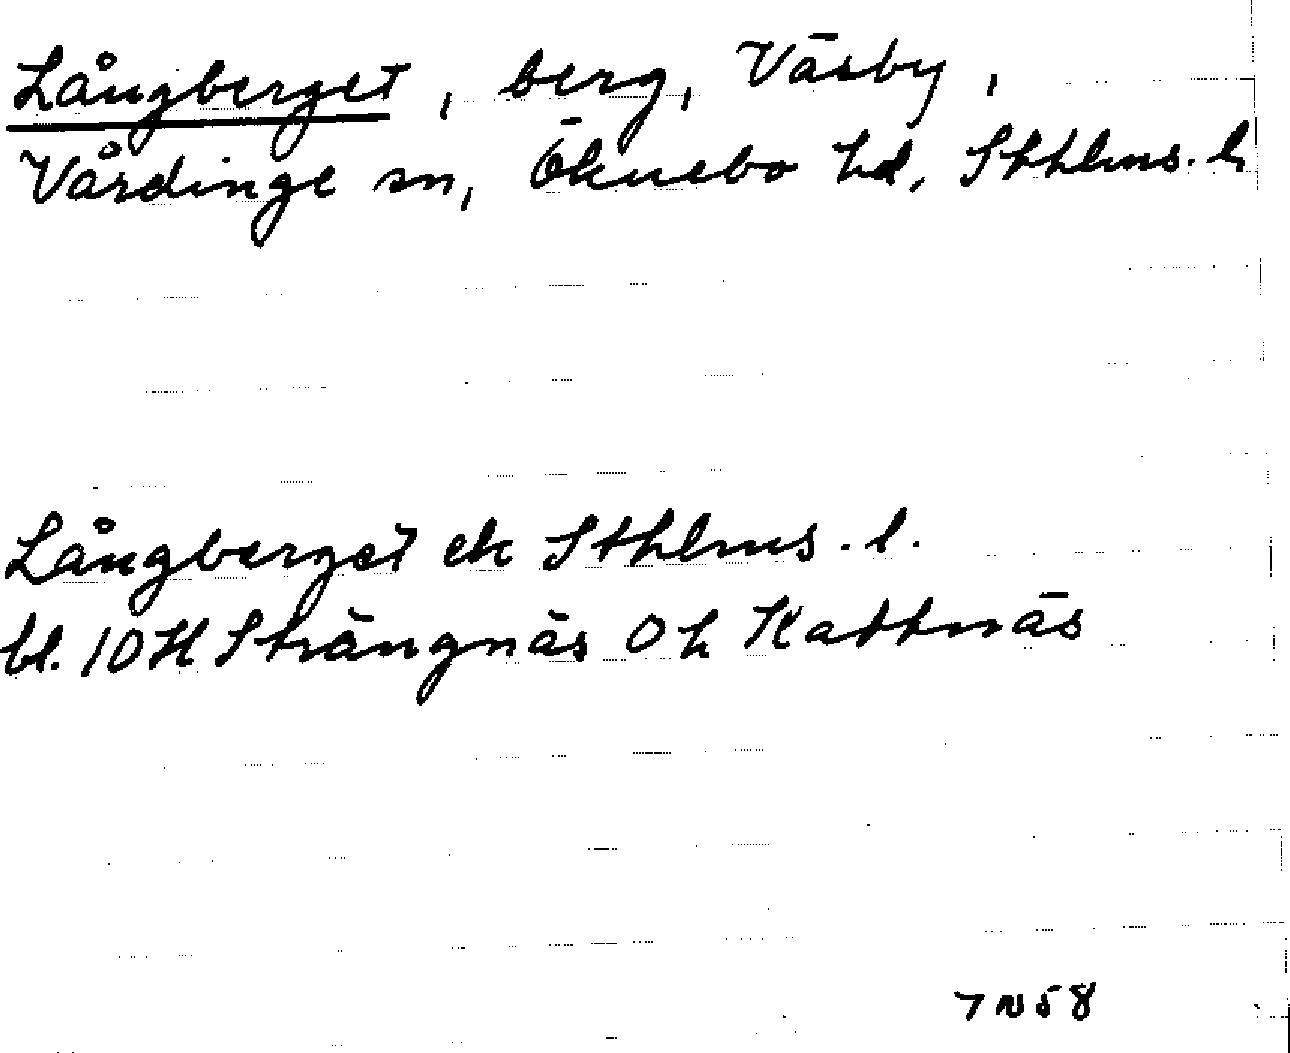 Långberget, berg, Väsby,
Vårdinge sn, Öknebo hd, Sthlms. l.
Långberget ek Sthlms. l.
bl. 10H Strängnäs 0h Kattnäs
7 N 58